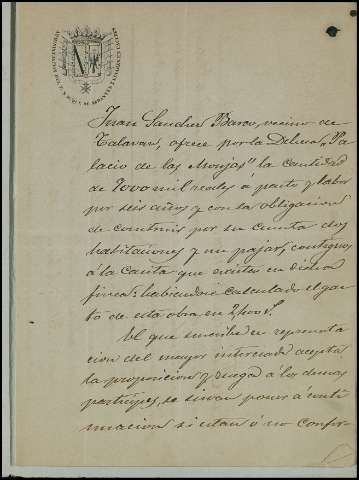 Juan Sanchez Barco, vecino de
Talavan, ofrece por la Dehesa "Pa-
lacio de las Monjas" la cantidad
de 7000 mil reales á pasto y labor
por seis años y con la obligacion
de construir por su cuenta dos
habitaciones y un pajar, contiguos
á la Casita que existe en dicha
finca: habiendose calculado el gas-
to de esta obra en
El que suscribe en representa-
cion del mayor interesado acepta
la proposicion y ruega á los demas
participes, se sirvan poner á conti-
nuacion si estan ó no confor-